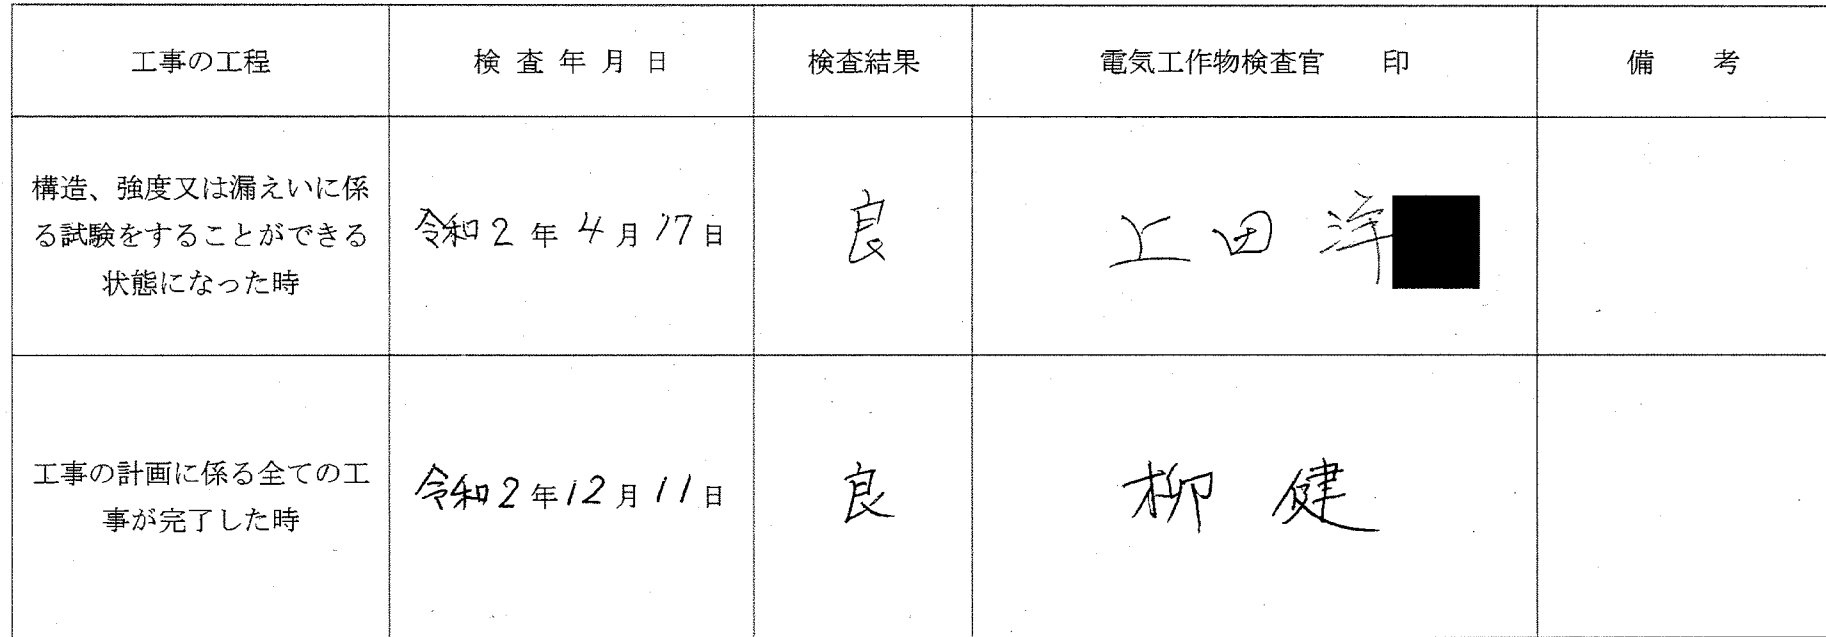 工事の工程 検査年月日 検査結果 電気工作物検査官 印 備考
構造、強度又は漏えいに係
る試験をすることができる
状態になった時
令和2年4月17日
良
上田洋
工事の計画に係る全ての工
事が完了した時
令和2年12月11日
良
柳健